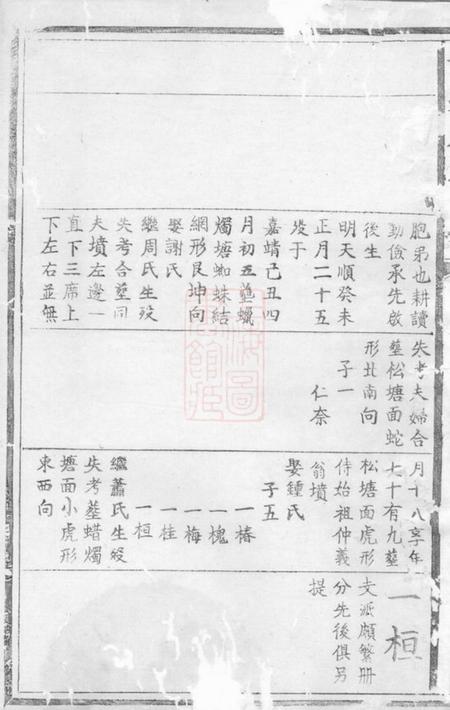 胞弟也耕讀
勤儉承先啟
後生
明天順癸未
正月二十五
歿于
嘉靖己丑四
月初五塟蠟
燭塘蜘蛛結
網形艮坤向
娶謝氏
繼周氏生歿
失考合塟同
夫墳左邊一
直下三席上
下左右並無
失考夫婦合
塟松塘面蛇
形北南向
子一
仁奈
月十八享年
七十有九塟
松塘面虎形
侍始祖仲義
翁墳
娶鍾氏
子五
一椿
一槐
一梅
一桂
一桓
繼蕭氏生歿
失考塟蜡燭
塘面小虎形
東西向
一桓
支派頗繁冊
分先後俱另
提